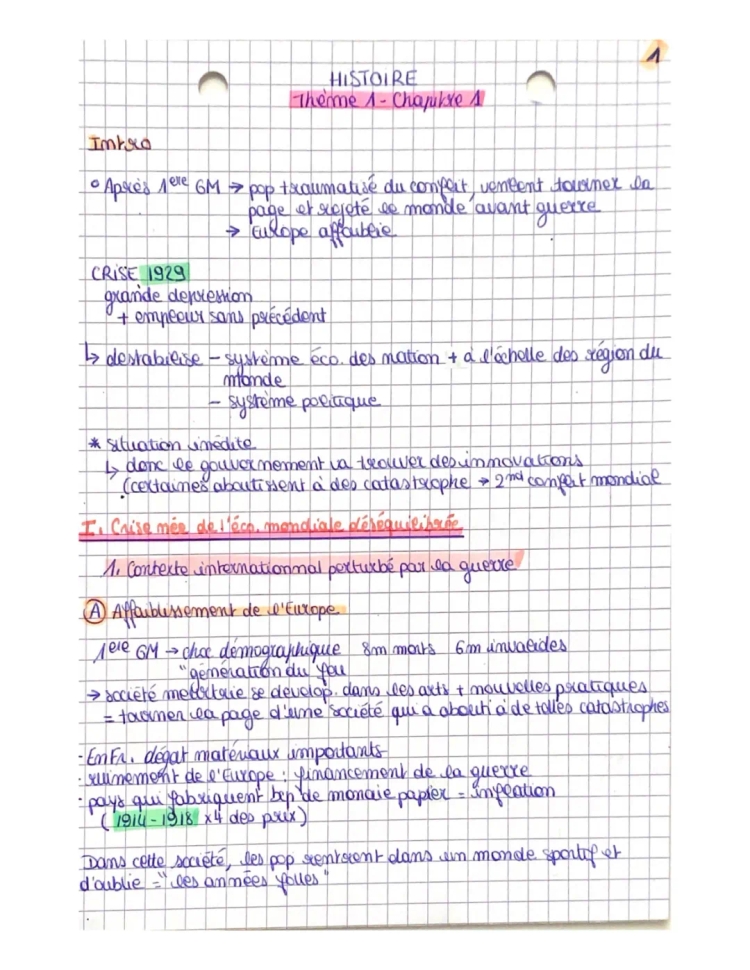 1
HISTOIRE
Thème 1 - Chapitre 1
Intro
° Après 1ere GM → pop traumatisé du conflit, veulent tourner la
page et rejeté le monde avant guerre
→ Europe affaiblie
CRISE 1929
grande depression
+ ampleur sans précédent
↳ destabilise - système éco. des nation + à l'échelle des région du
monde
- système politique
* situation inédite
↳ donc le gouvernement va trouver des innovations
(certaines aboutissent à des catastrophe → 2nd conflit mondial
I. Crise née de l'éco. mondiale déséquilibrée
1. Contexte internationnal perturbé par la guerre
A Affaiblissement de l'Europe
1ere GM → choc démographique 8m morts 6m invalides
"génération du feu
→ société se develop. dans les arts + nouvelles pratiques
= tourner la page d'une société qui a abouti à de telles catastrophes
- En Fr. dégat matériaux importants
- ruinement de l'Europe : financement de la guerre
- pays qui fabriquent bcp de monaie papier = inflation
(1914-1918 x4 des prix)
Dans cette société, les pop rentrent dans un monde sportif et
d'oublie = "les années folles"